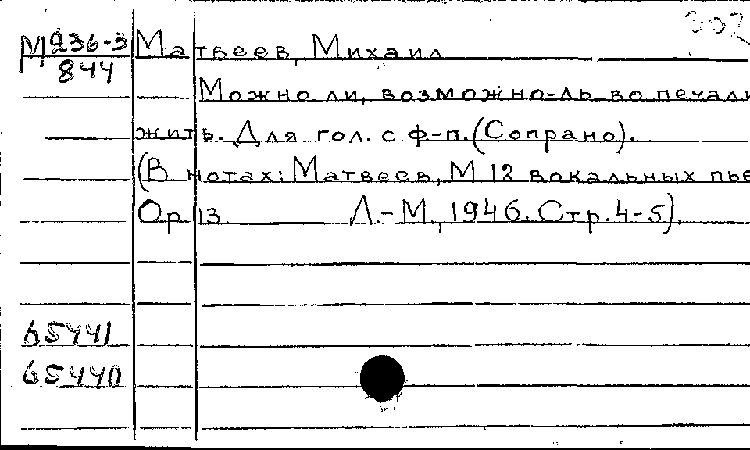 302
М 236-3 Матвеев, Михаил
844
Можно ли, возможно-ль во печали
жить. Для гол. с ф-п. (Сопрано).
(В нотах: Матвеев, М 12 вокальных пье
Ор 13 Л.-М., 1946. Стр. 4-5).
65441
65440